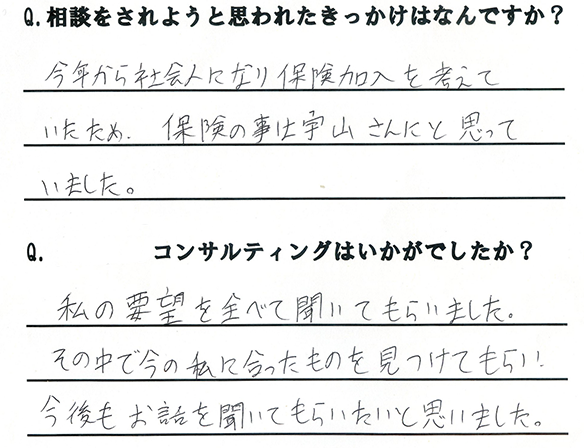 Q.相談をされようと思われたきっかけはなんですか？
今年から社会人になり保険加入を考えて
いたため、保険の事は宇山さんにと思って
いました。
Q.　コンサルティングはいかがでしたか？
私の要望を全べて聞いてもらいました。
その中で今の私に合ったものを見つけてもらい！
今後もお話を聞いてもらいたいと思いました。